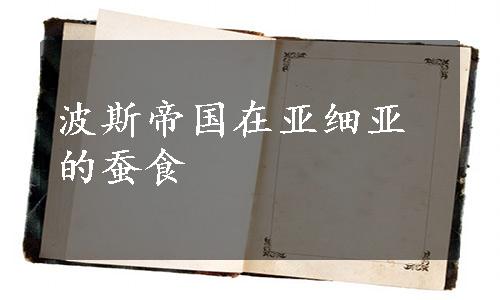 波斯帝国在亚细亚
的蚕食